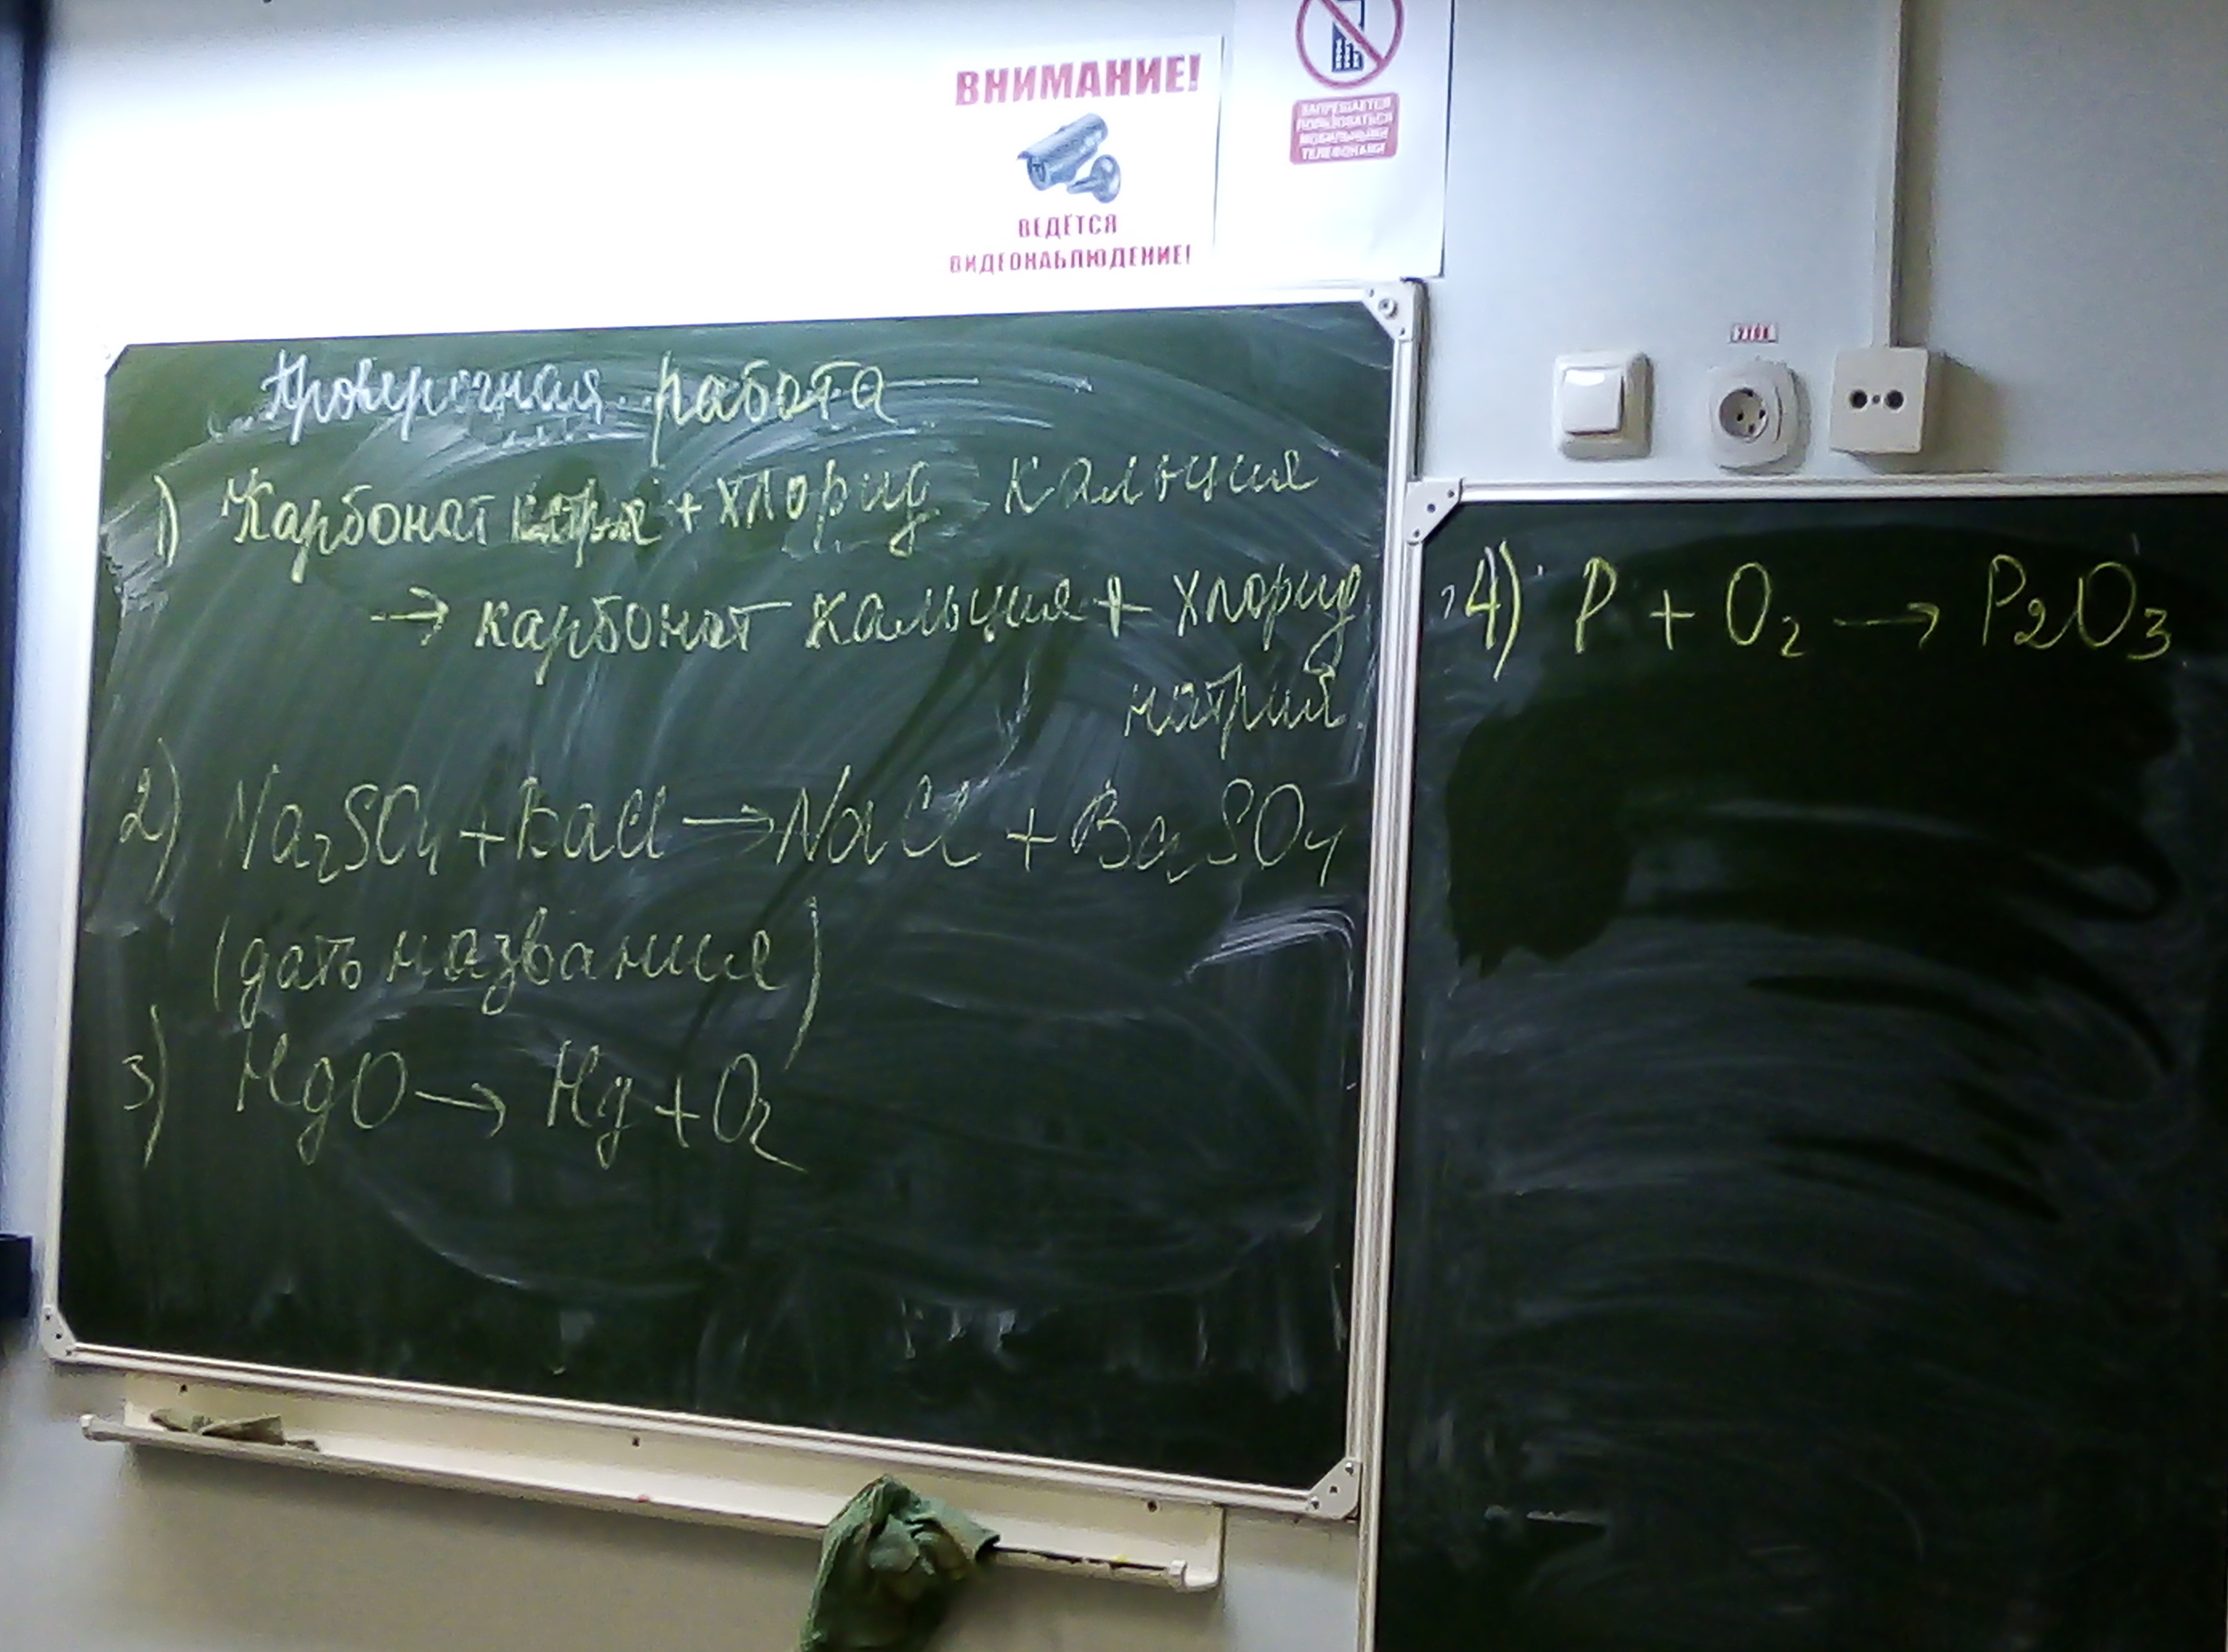 ВНИМАНИЕ!
ВЕДЁТСЯ
ВИДЕОНАБЛЮДЕНИЕ!
ЗАПРЕЩАЕТСЯ
ПОЛЬЗОВАТЬСЯ
МОБИЛЬНЫМИ
ТЕЛЕФОНАМИ
220В
Проверочная работа
1) Карбонат + хлорид кальция
→ карбонат кальция + хлорид
натрия.
2) Na₂SO₄ + BaCl → NaCl + BaSO₄
(дать названия)
3) HgO → Hg + O₂
4) P + O₂ → P₂O₃